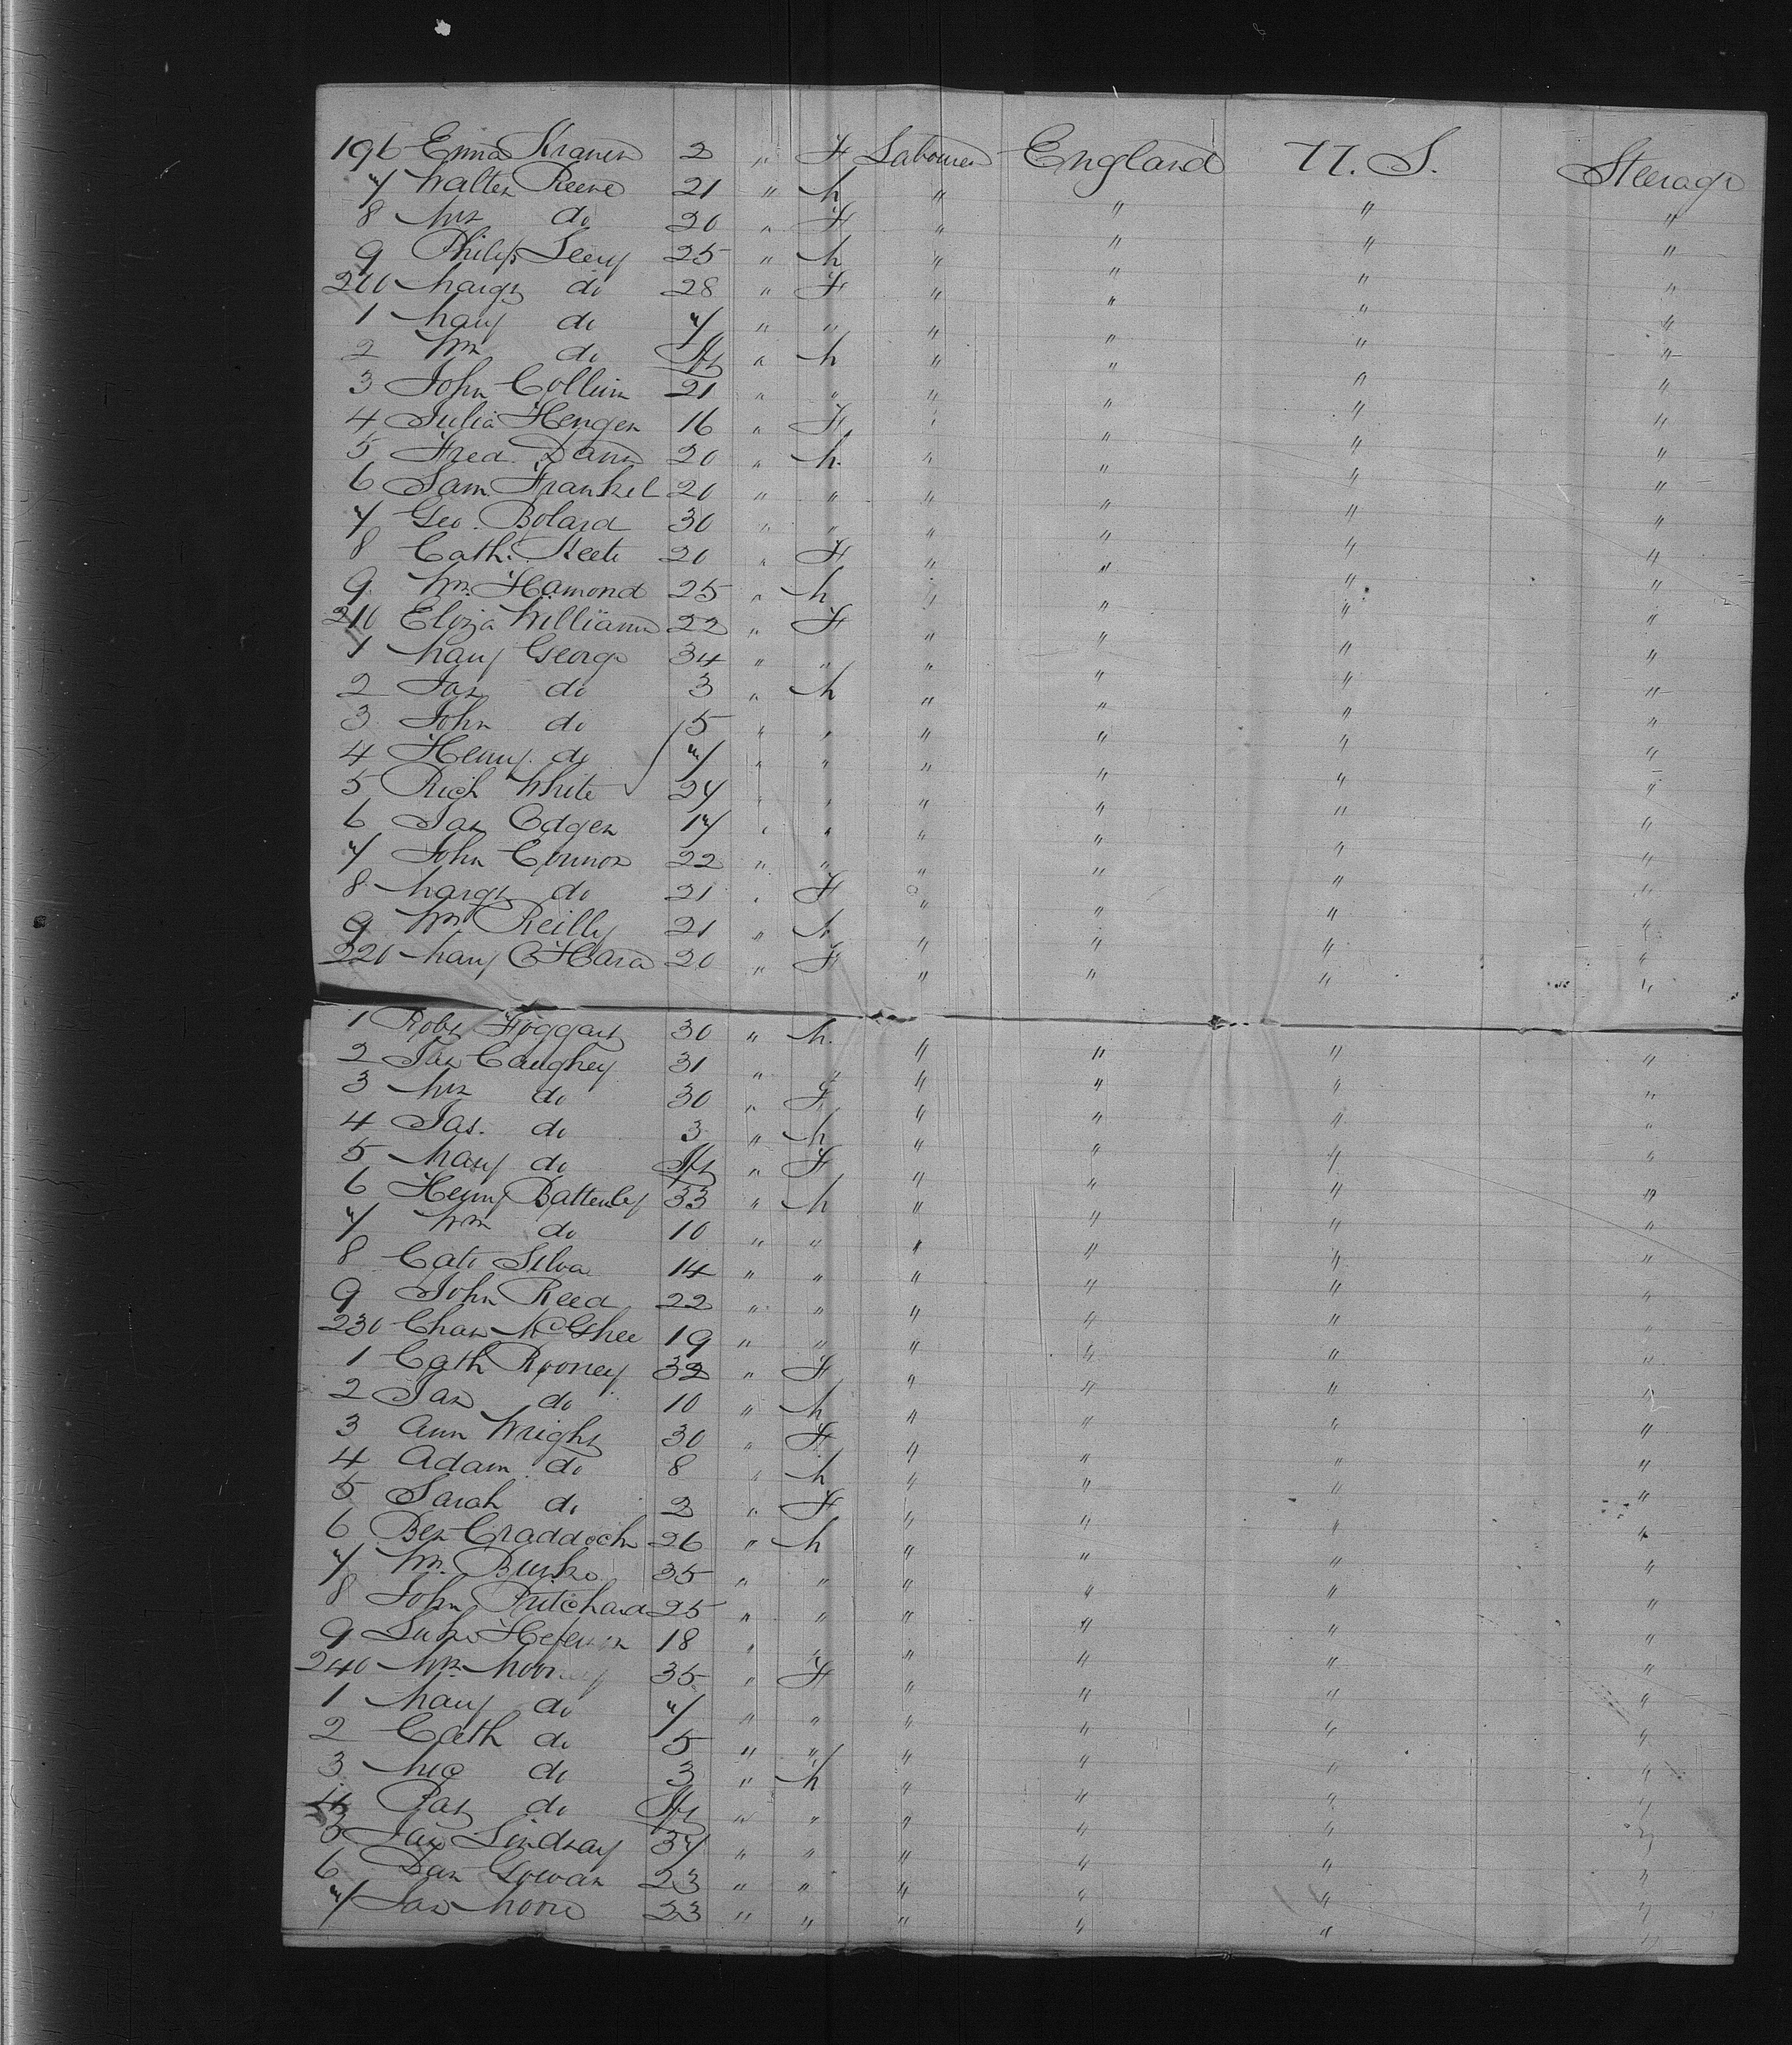 196 Emma Kraner 2 " F Labourer England U.S. Steerage
7 Walter Reeve 21 " M " " " "
8 Mrs do 20 " F " " " "
9 Philip Leey 25 " M " " " "
200 Margt do 28 " F " " " "
1 Mary do 7 " " " " " "
2 Wm do Inft " M " " " "
3 John Collins 21 " " " " " "
4 Julia Henger 16 " F " " " "
5 Fred. Dann 20 " M " " " "
6 Sam Frankel 20 " " " " " "
7 Geo. Bolard 30 " " " " " "
8 Cath. Keete 20 " F " " " "
9 Wm. Hamond 25 " M " " " "
210 Eliza Williams 22 " F " " " "
1 Mary George 34 " " " " " "
2 Jas do 3 " M " " " "
3 John do 5 " " " " " "
4 Henry do 7 " " " " " "
5 Rich White 27 " " " " " "
6 Jas Edger 17 " " " " " "
7 John Connor 22 " " " " " "
8 Margt do 21 " F " " " "
9 Wm Reilly 21 " M " " " "
220 Mary O'Hara 20 " F " " " "
1 Robt Foggart 30 " M " " " "
2 Jas Caughey 31 " " " " " "
3 Mrs do 30 " F " " " "
4 Jas. do 3 " M " " " "
5 Mary do Inft " F " " " "
6 Henry Battenby 33 " M " " " "
7 Wm do 10 " " " " " "
8 Cato Silva 14 " " " " " "
9 John Reed 22 " " " " " "
230 Chas McGhee 19 " " " " " "
1 Cath Rooney 32 " F " " " "
2 Jas do 10 " M " " " "
3 Ann Wright 30 " F " " " "
4 Adam do 8 " M " " " "
5 Sarah do 2 " F " " " "
6 Ben Craddock 26 " M " " " "
7 Wm. Burke 35 " " " " " "
8 John Pritchard 25 " " " " " "
9 Luke 18 " " " " " "
240 Mrs. Mooney 35 " F " " " "
1 Mary do 7 " " " " " "
2 Cath do 5 " " " " " "
3 Mic do 3 " M " " " "
4 Pat do Inft " " " " " "
5 Jas Lindsay 37 " " " " " "
6 Dan Gowan 23 " " " " " "
7 Jas Moore 23 " " " " " "